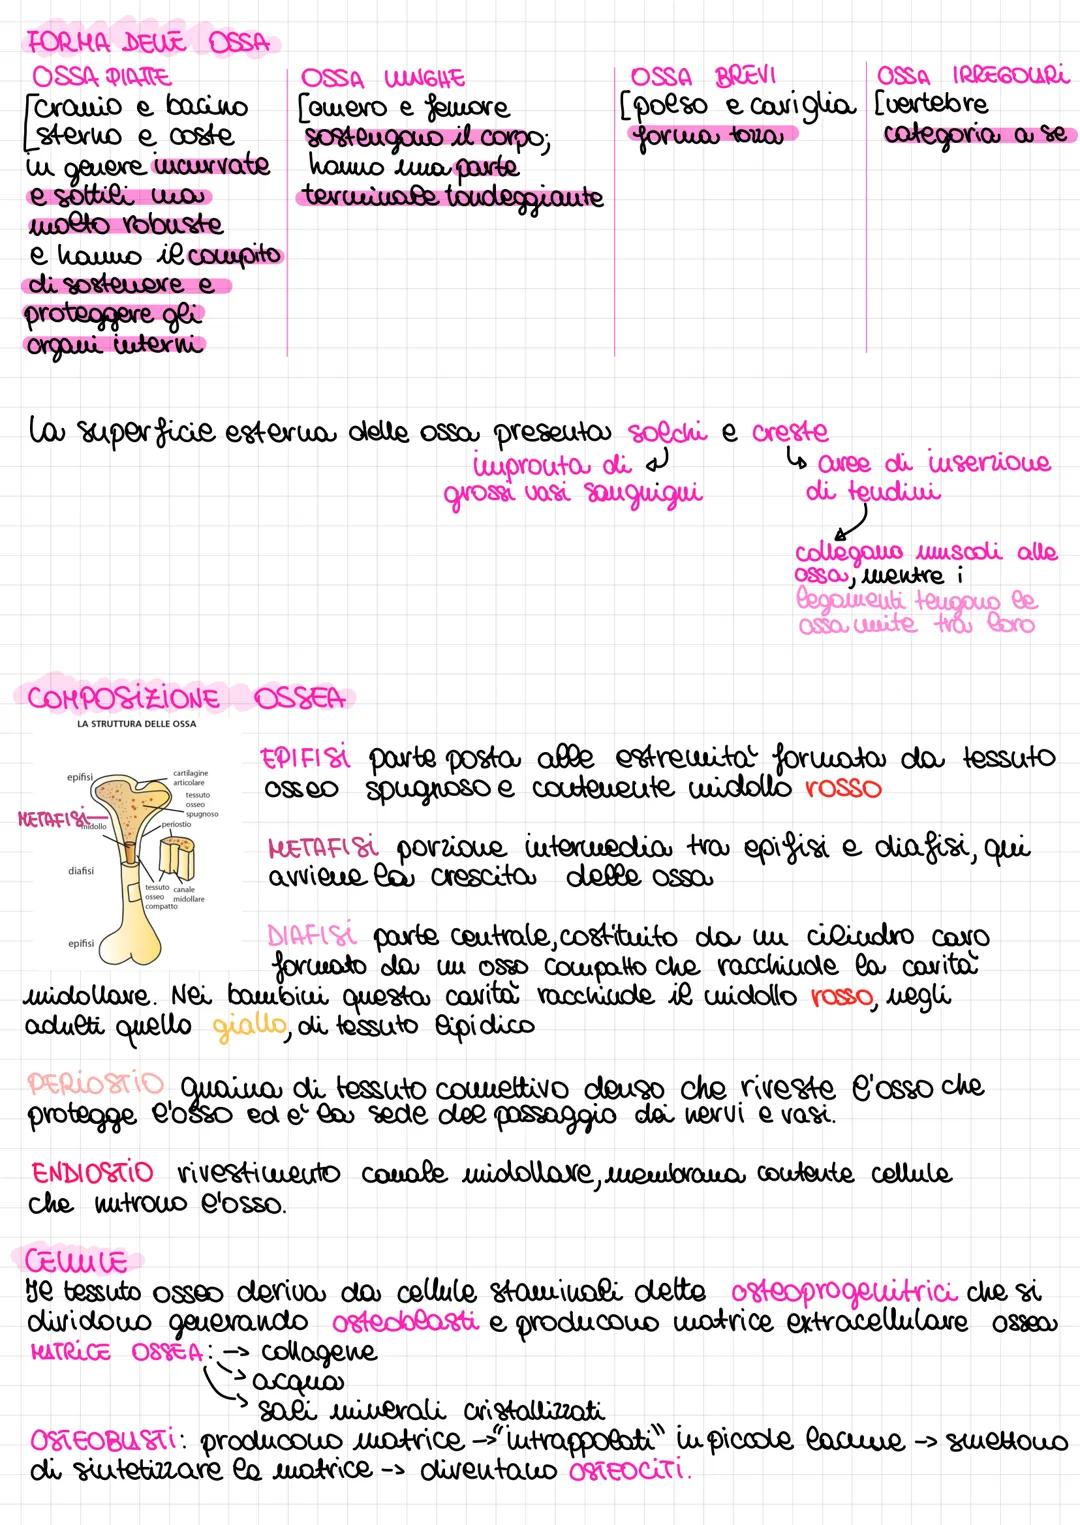 FORMA DELLE OSSA
OSSA PIATTE
[cranio e bacino
sterno e coste
in genere incurvate
e sottili ma
molto robuste
e hanno il compito
di sostenere e
proteggere gli
organi interni
OSSA LUNGHE
[omero e femore
sostengono il corpo;
hanno una parte
terminale tondeggiante
OSSA BREVI
[polso e caviglia
forma tozza
OSSA IRREGOLARI
[vertebre
categoria a se
La superficie esterna delle ossa presenta solchi e creste
impronta di
grossi vasi sanguigni
↳ aree di inserzione
di tendini
collegano muscoli alle
ossa, mentre i
legamenti tengono le
ossa unite tra loro
COMPOSIZIONE OSSEA
LA STRUTTURA DELLE OSSA
epifisi
cartilagine
articolare
tessuto
osseo
spugnoso
METAFISI
midollo
periostio
diafisi
tessuto
osseo
compatto
canale
midollare
epifisi
EPIFISI parte posta alle estremità formata da tessuto
osseo spugnoso e contenente midollo rosso
METAFISI porzione intermedia tra epifisi e diafisi, qui
avviene la crescita delle ossa
DIAFISI parte centrale, costituito da un cilindro cavo
formato da un osso compatto che racchiude la cavità
midollare. Nei bambini questa cavità racchiude il midollo rosso, negli
adulti quello giallo, di tessuto lipidico
PERIOSTIO guaina di tessuto connettivo denso che riveste l'osso che
protegge l'osso ed è la sede del passaggio dei nervi e vasi.
ENDIOSTIO rivestimento canale midollare, membrana contente cellule
che nutrono l'osso.
CELLULE
Il tessuto osseo deriva da cellule staminali dette osteoprogenitrici che si
dividono generando osteoblasti e producono matrice extracellulare ossea
MATRICE OSSEA: -> collagene
-> acqua
-> sali minerali cristallizzati
OSTEOBLASTI: producono matrice -> "intrappolati" in piccole lacune -> smettono
di sintetizzare la matrice -> diventano OSTEOCITI.